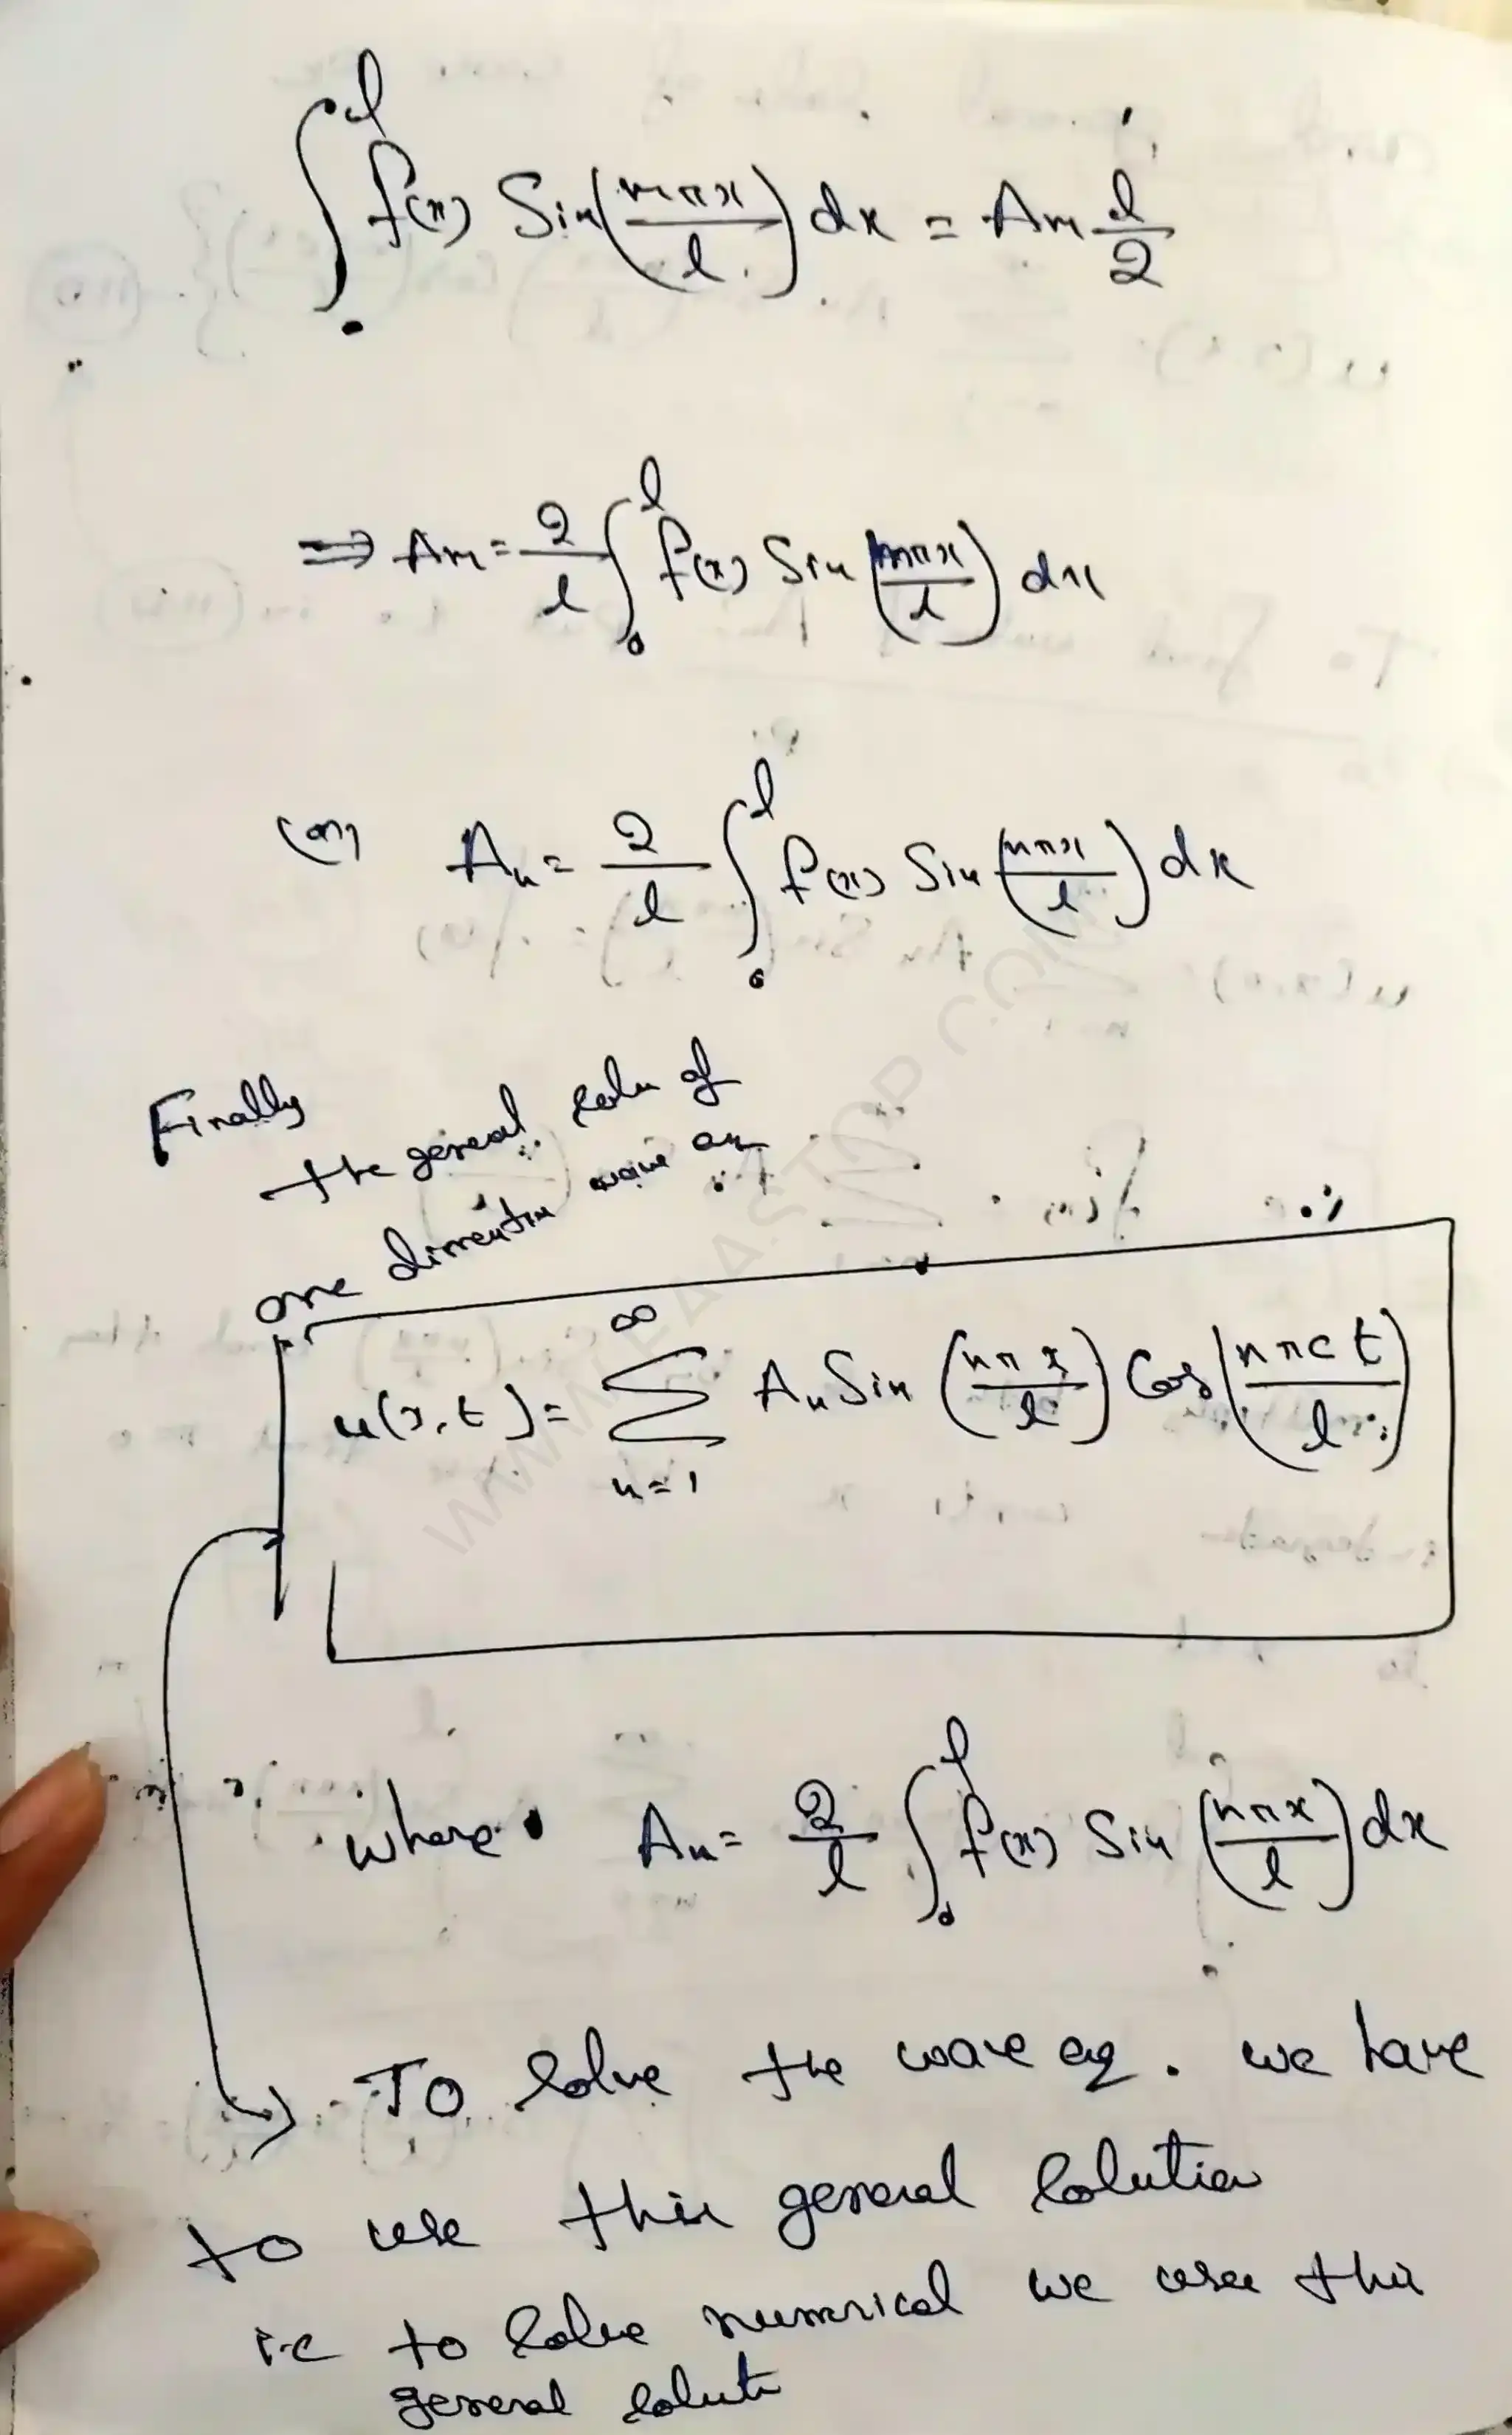 ∫₀ˡ f(x) Sin(mπx/l) dx = Am l/2
⇒ Am = 2/l ∫₀ˡ f(x) Sin(mπx/l) dx
(or) An = 2/l ∫₀ˡ f(x) Sin(nπx/l) dx
Finally
the general soln of
one dimention wave
u(x,t) = ∑ₙ₌₁^∞ An Sin(nπx/l) Cos(nπct/l)
where An = 2/l ∫₀ˡ f(x) Sin(nπx/l) dx
→ TO solve the wave eq. we have
to use this general solution
i.e to solve numerical we use this
general soluti